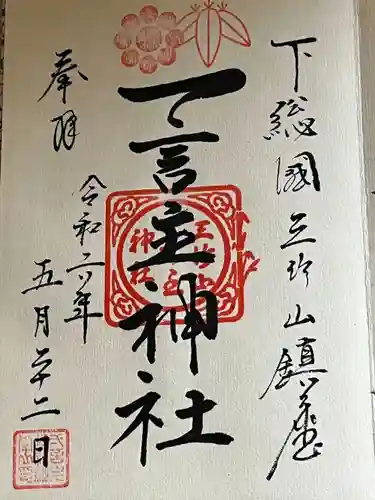 下総國三竹山鎮座
一言主神社
奉拝
令和六年
五月二十二日